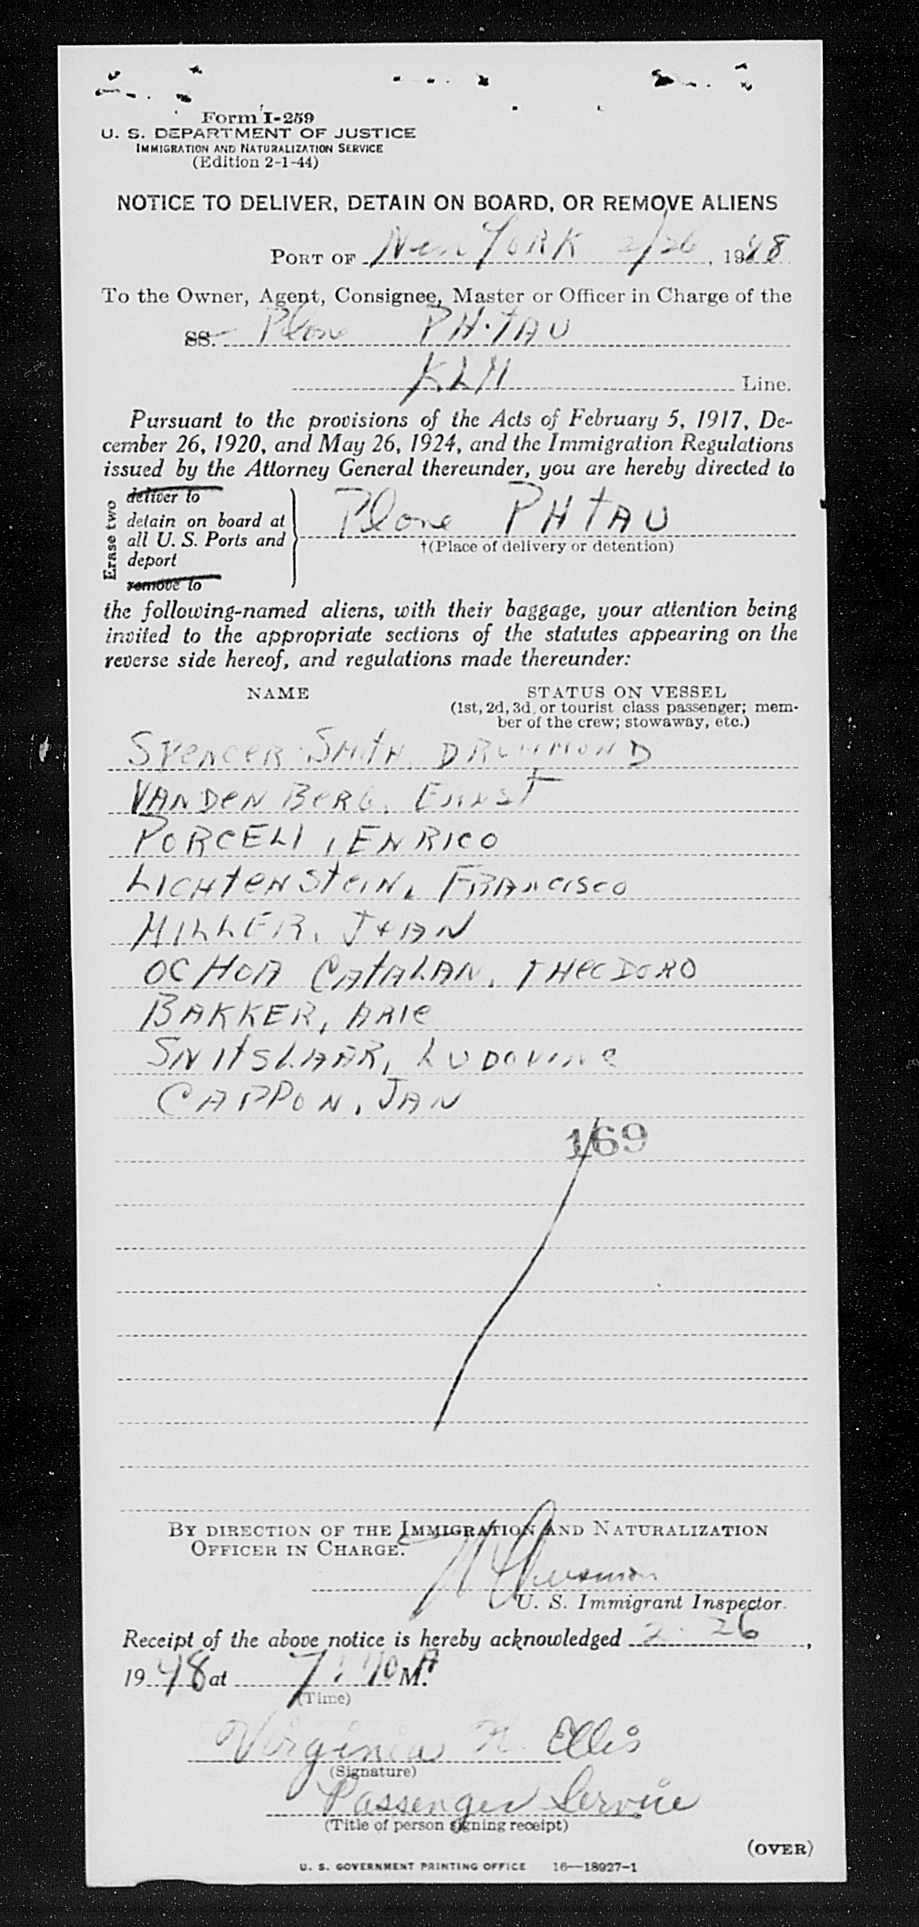 Form I-259
U. S. DEPARTMENT OF JUSTICE
IMMIGRATION AND NATURALIZATION SERVICE
(Edition 2-1-44)
NOTICE TO DELIVER, DETAIN ON BOARD, OR REMOVE ALIENS
PORT OF New York 2/26, 1948
To the Owner, Agent, Consignee, Master or Officer in Charge of the
SS. Plane PH-TAU
KLM Line.
Pursuant to the provisions of the Acts of February 5, 1917, De-
cember 26, 1920, and May 26, 1924, and the Immigration Regulations
issued by the Attorney General thereunder, you are hereby directed to
Erase two
deliver to
detain on board at
all U. S. Ports and
deport
remove to
Plane PHTAU
†(Place of delivery or detention)
the following-named aliens, with their baggage, your attention being
invited to the appropriate sections of the statutes appearing on the
reverse side hereof, and regulations made thereunder:
NAME
STATUS ON VESSEL
(1st, 2d, 3d, or tourist class passenger; mem-
ber of the crew; stowaway, etc.)
SPENCER-SMITH, DRUMMOND
VANDEN BERG, ERNST
PORCELI, ENRICO
LICHTENSTEIN, FRANCISCO
MILLER, JEAN
OCHOA CATALAN, THEODORO
BAKKER, ARIE
SNITSLAAR,
CAPPON, JAN
169
BY DIRECTION OF THE IMMIGRATION AND NATURALIZATION
OFFICER IN CHARGE.
U. S. Immigrant Inspector.
Receipt of the above notice is hereby acknowledged 2-26,
1948 at 7:40 AM.
(Time)
Virginia H. Ellis
(Signature)
Passenger Service
(Title of person signing receipt)
(OVER)
U. S. GOVERNMENT PRINTING OFFICE 16—18927-1